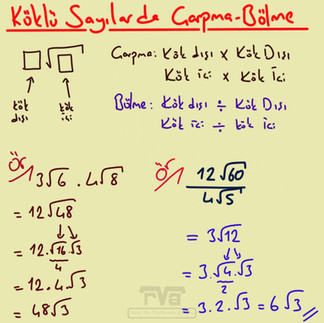 Köklü Sayılarda Çarpma-Bölme
Çarpma: Kök dışı x Kök Dışı
Kök içi x Kök İçi
kök dışı
kök içi
Bölme: Kök dışı ÷ Kök Dışı
Kök içi ÷ kök içi
Ör/ 3√6 . 4√8
= 12√48
= 12.√16.√3
4
= 12.4√3
= 48√3
Ör/ 12√60 / 4√5
= 3√12
= 3.√4.√3
2
= 3.2.√3 = 6√3 //
rva